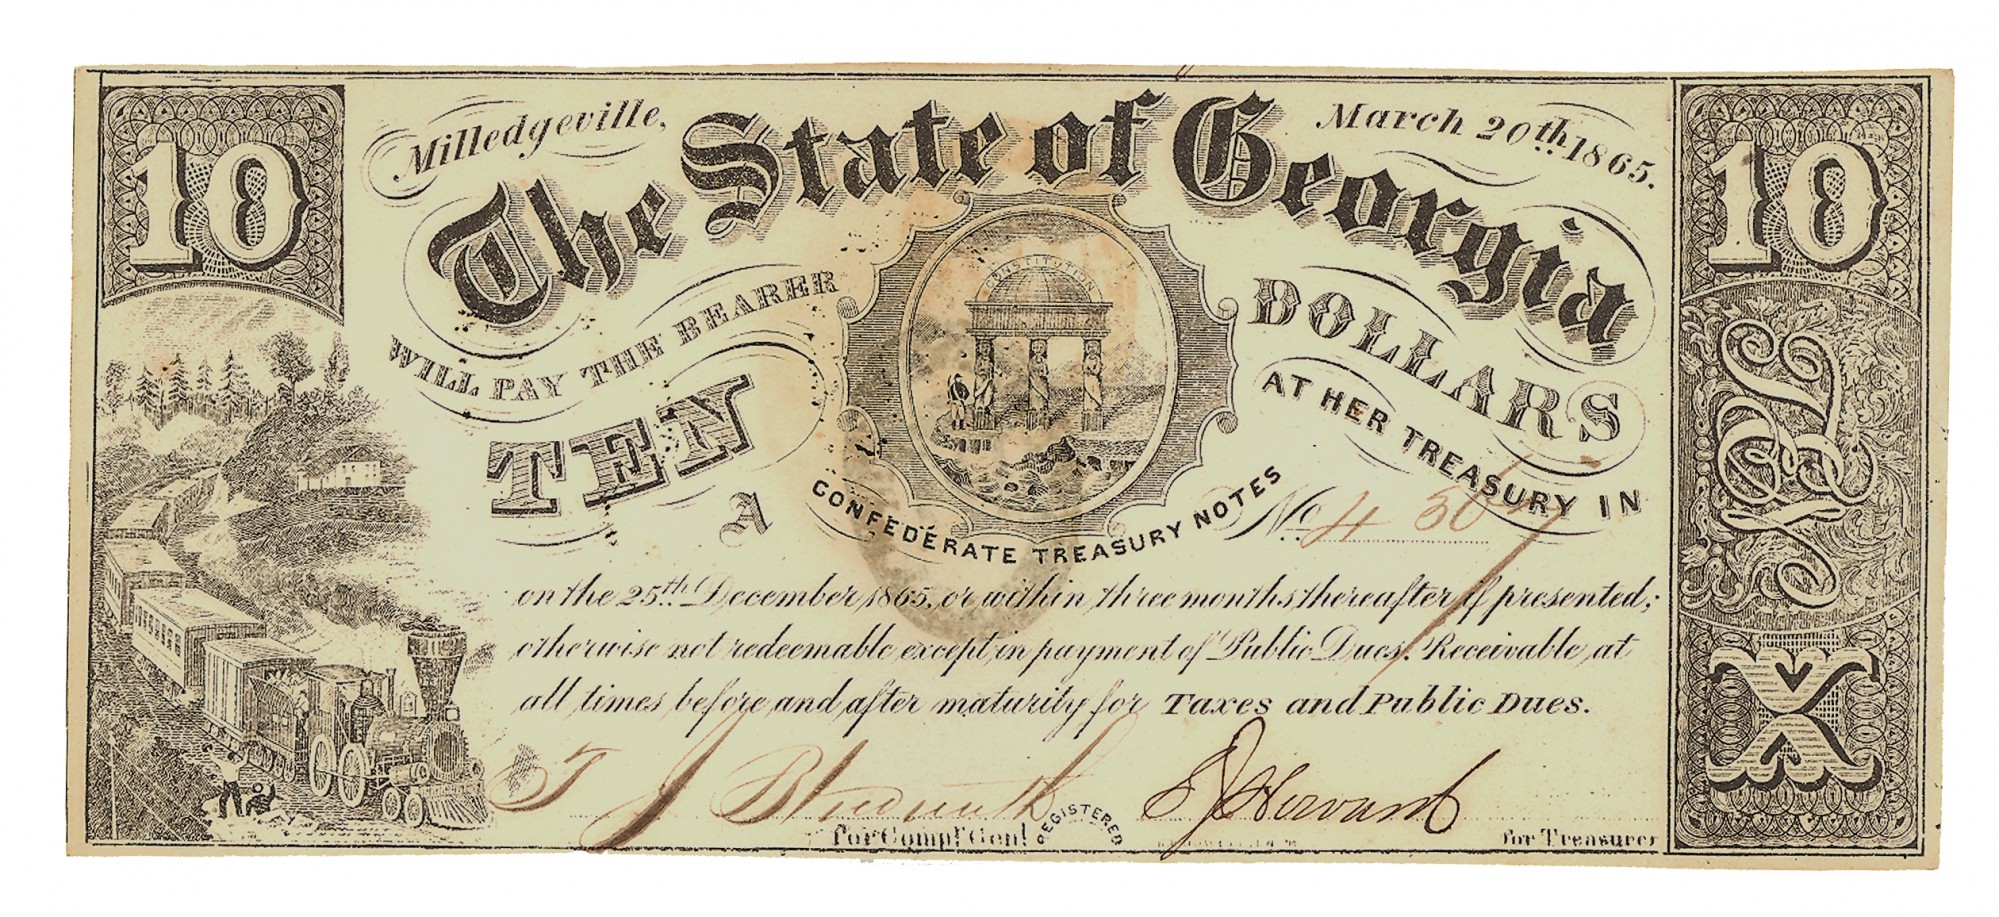 10
Milledgeville,
March 20th 1865.
10
The State of Georgia
WILL PAY THE BEARER
TEN
DOLLARS
CONSTITUTION
AT HER TREASURY IN
A
CONFEDERATE TREASURY NOTES
No.
on the 25th December, 1865, or within three months thereafter if presented;
otherwise not redeemable except in payment of Public Dues. Receivable at
all times before and after maturity for Taxes and Public Dues.
X
For Compt Genl
REGISTERED
for Treasurer